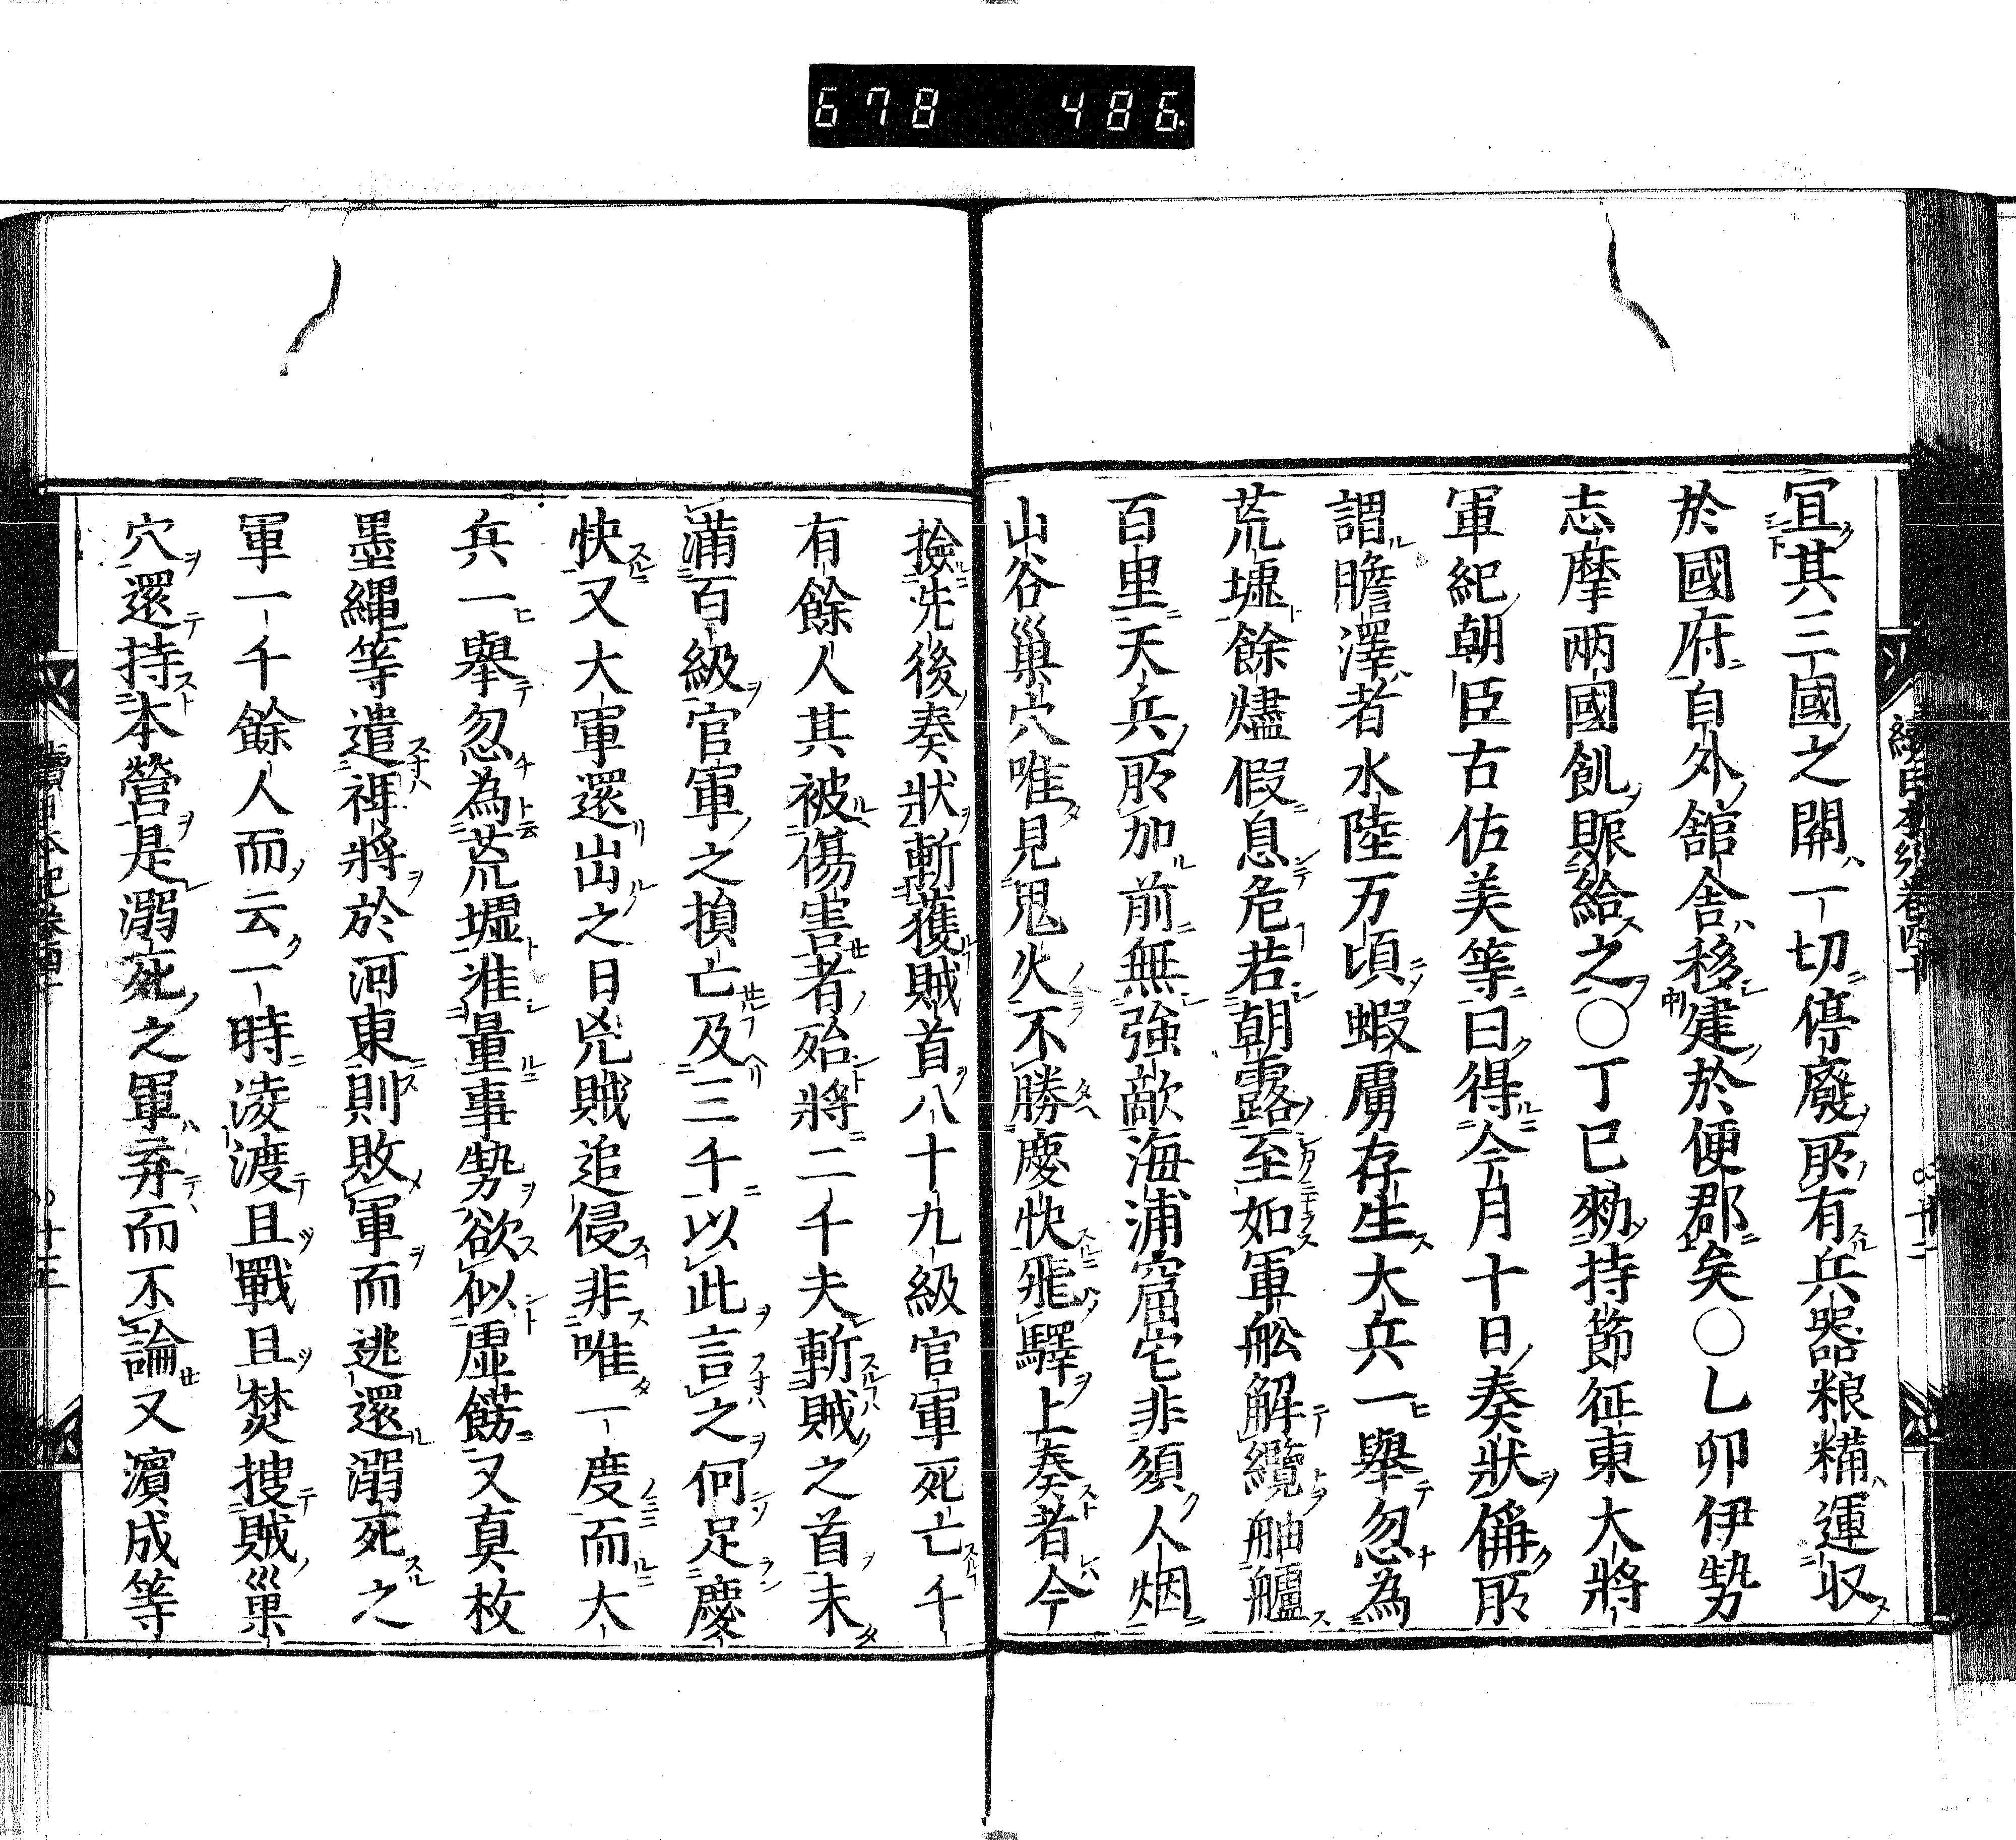 678 486.
宜其三國之關一切停廢所有兵器粮糒運収
於國府自外舘舎移建於便郡矣〇乙卯伊勢
志摩兩國飢賑給之〇丁巳勅持節征東大將
軍紀朝臣古佐美等曰得今月十日奏狀偁所
謂膽澤者水陸万頃蝦虜存生大兵一舉忽為
荒墟餘燼假息危若朝露至如軍舩解纜舳艫
百里天兵所加前無強敵海浦窟宅非須人烟
山谷巣穴唯見鬼火不勝慶快飛驛上奏者今
撿先後奏狀斬獲賊首八十九級官軍死亡千
有餘人其被傷害者殆將二千夫斬賊之首未
滿百級官軍之損亡及三千以此言之何足慶
快又大軍還出之日兇賊追侵非唯一度而大
兵一舉忽為荒墟准量事勢欲似虛餝又真枚
墨繩等遣禆將於河東則敗軍而逃還溺死之
軍一千餘人而云一時淩渡且戰且焚捜賊巣
穴還持本營是溺死之軍弃而不論又濱成等